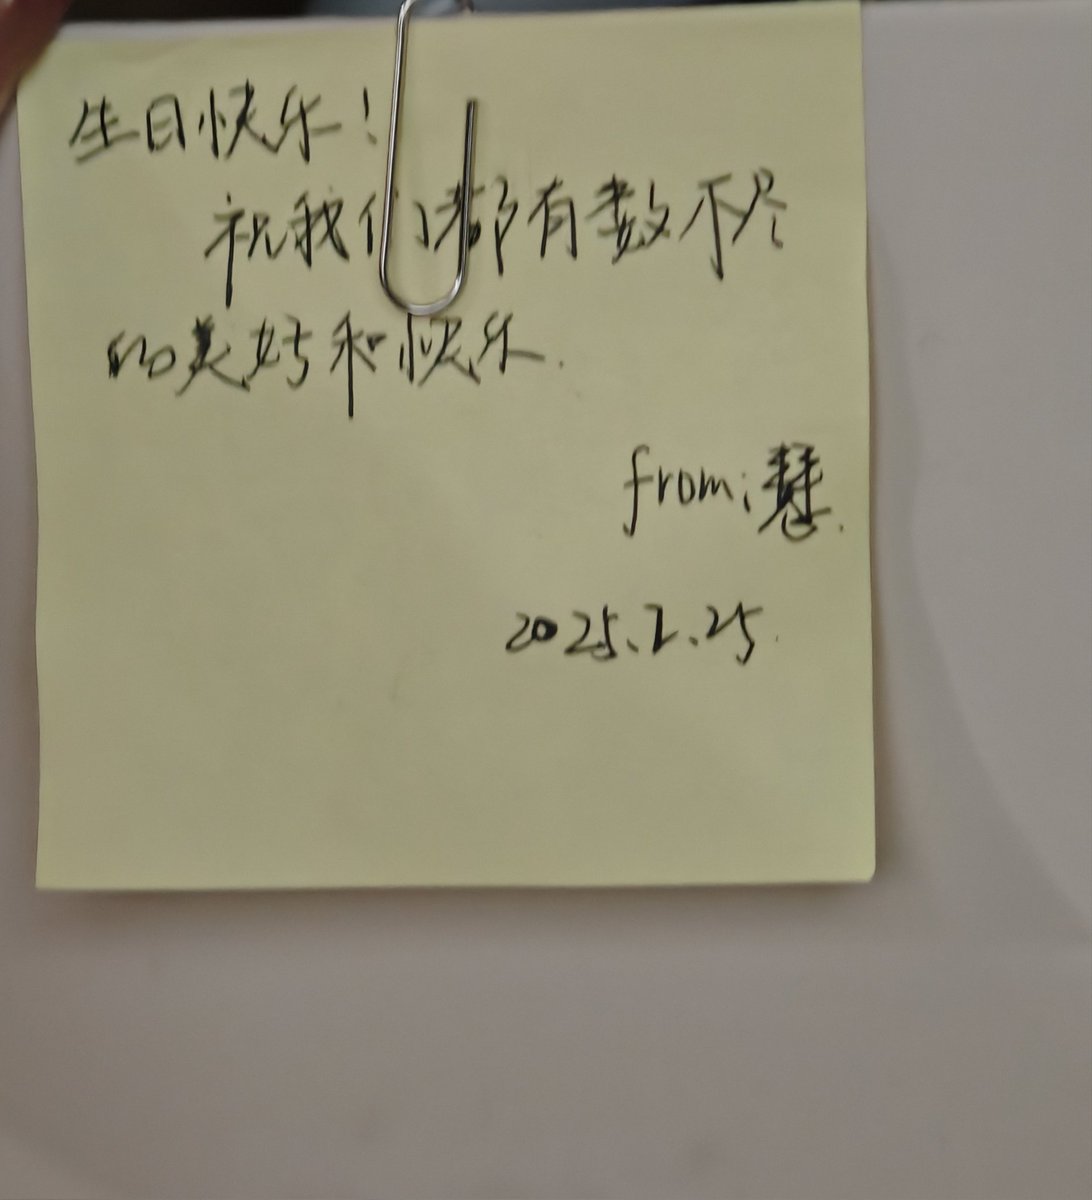 生日快乐！
祝我们都有数不尽
的美好和快乐.
from:慧.
2025.2.25.